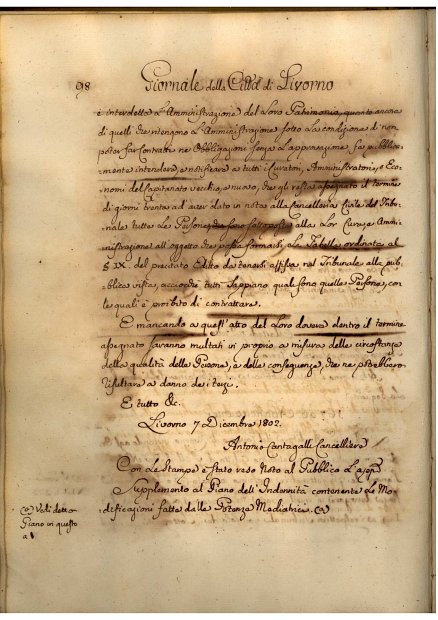 98
Giornale della Città di Livorno
è interdetta l'Amministrazione del Loro Patrimonio, quanto ancora
di quelli che ritengono l'Amministrazione sotto la condizione di non
poter far Contratti ne Obbligazioni senza l'approvazione, fa pubblica-
mente intendere, e notificare a tutti i Curatori, Amministratori, e Eco-
nomi del Capitanato vecchio, e nuovo, che gli resta assegnato il termine
di giorni trenta ad aver dato in nota alla Cancelleria Civile del Tribu-
nale tutte le Persone, che sono sottoposte alla Lor Cura, e Ammi-
nistrazione all'oggetto che possa formarsi la Tabella ordinata al
§ IX. del precitato Editto da tenersi affissa nel Tribunale alla pub-
blica vista, acciocchè tutti sappiano quali sono quelle Persone, con
le quali è proibito di contrattare.
E mancando a quest'atto del Loro dovere dentro il termine
assegnato saranno multati in proprio a misura delle circostanze
della qualità delle Persone, e delle conseguenze, che ne potrebbero
risultare a danno dei terzi.
E tutto &c.
Livorno 7 Dicembre 1802.
Antonio Cantagalli Cancelliere
Con le Stampe è stato reso Noto al Pubblico
Supplemento al Piano dell'Indennità contenente Le Mo-
dificazioni fatte dalle Potenze Mediatrici. (a)
(a) Vedi detto
Piano in questo
a